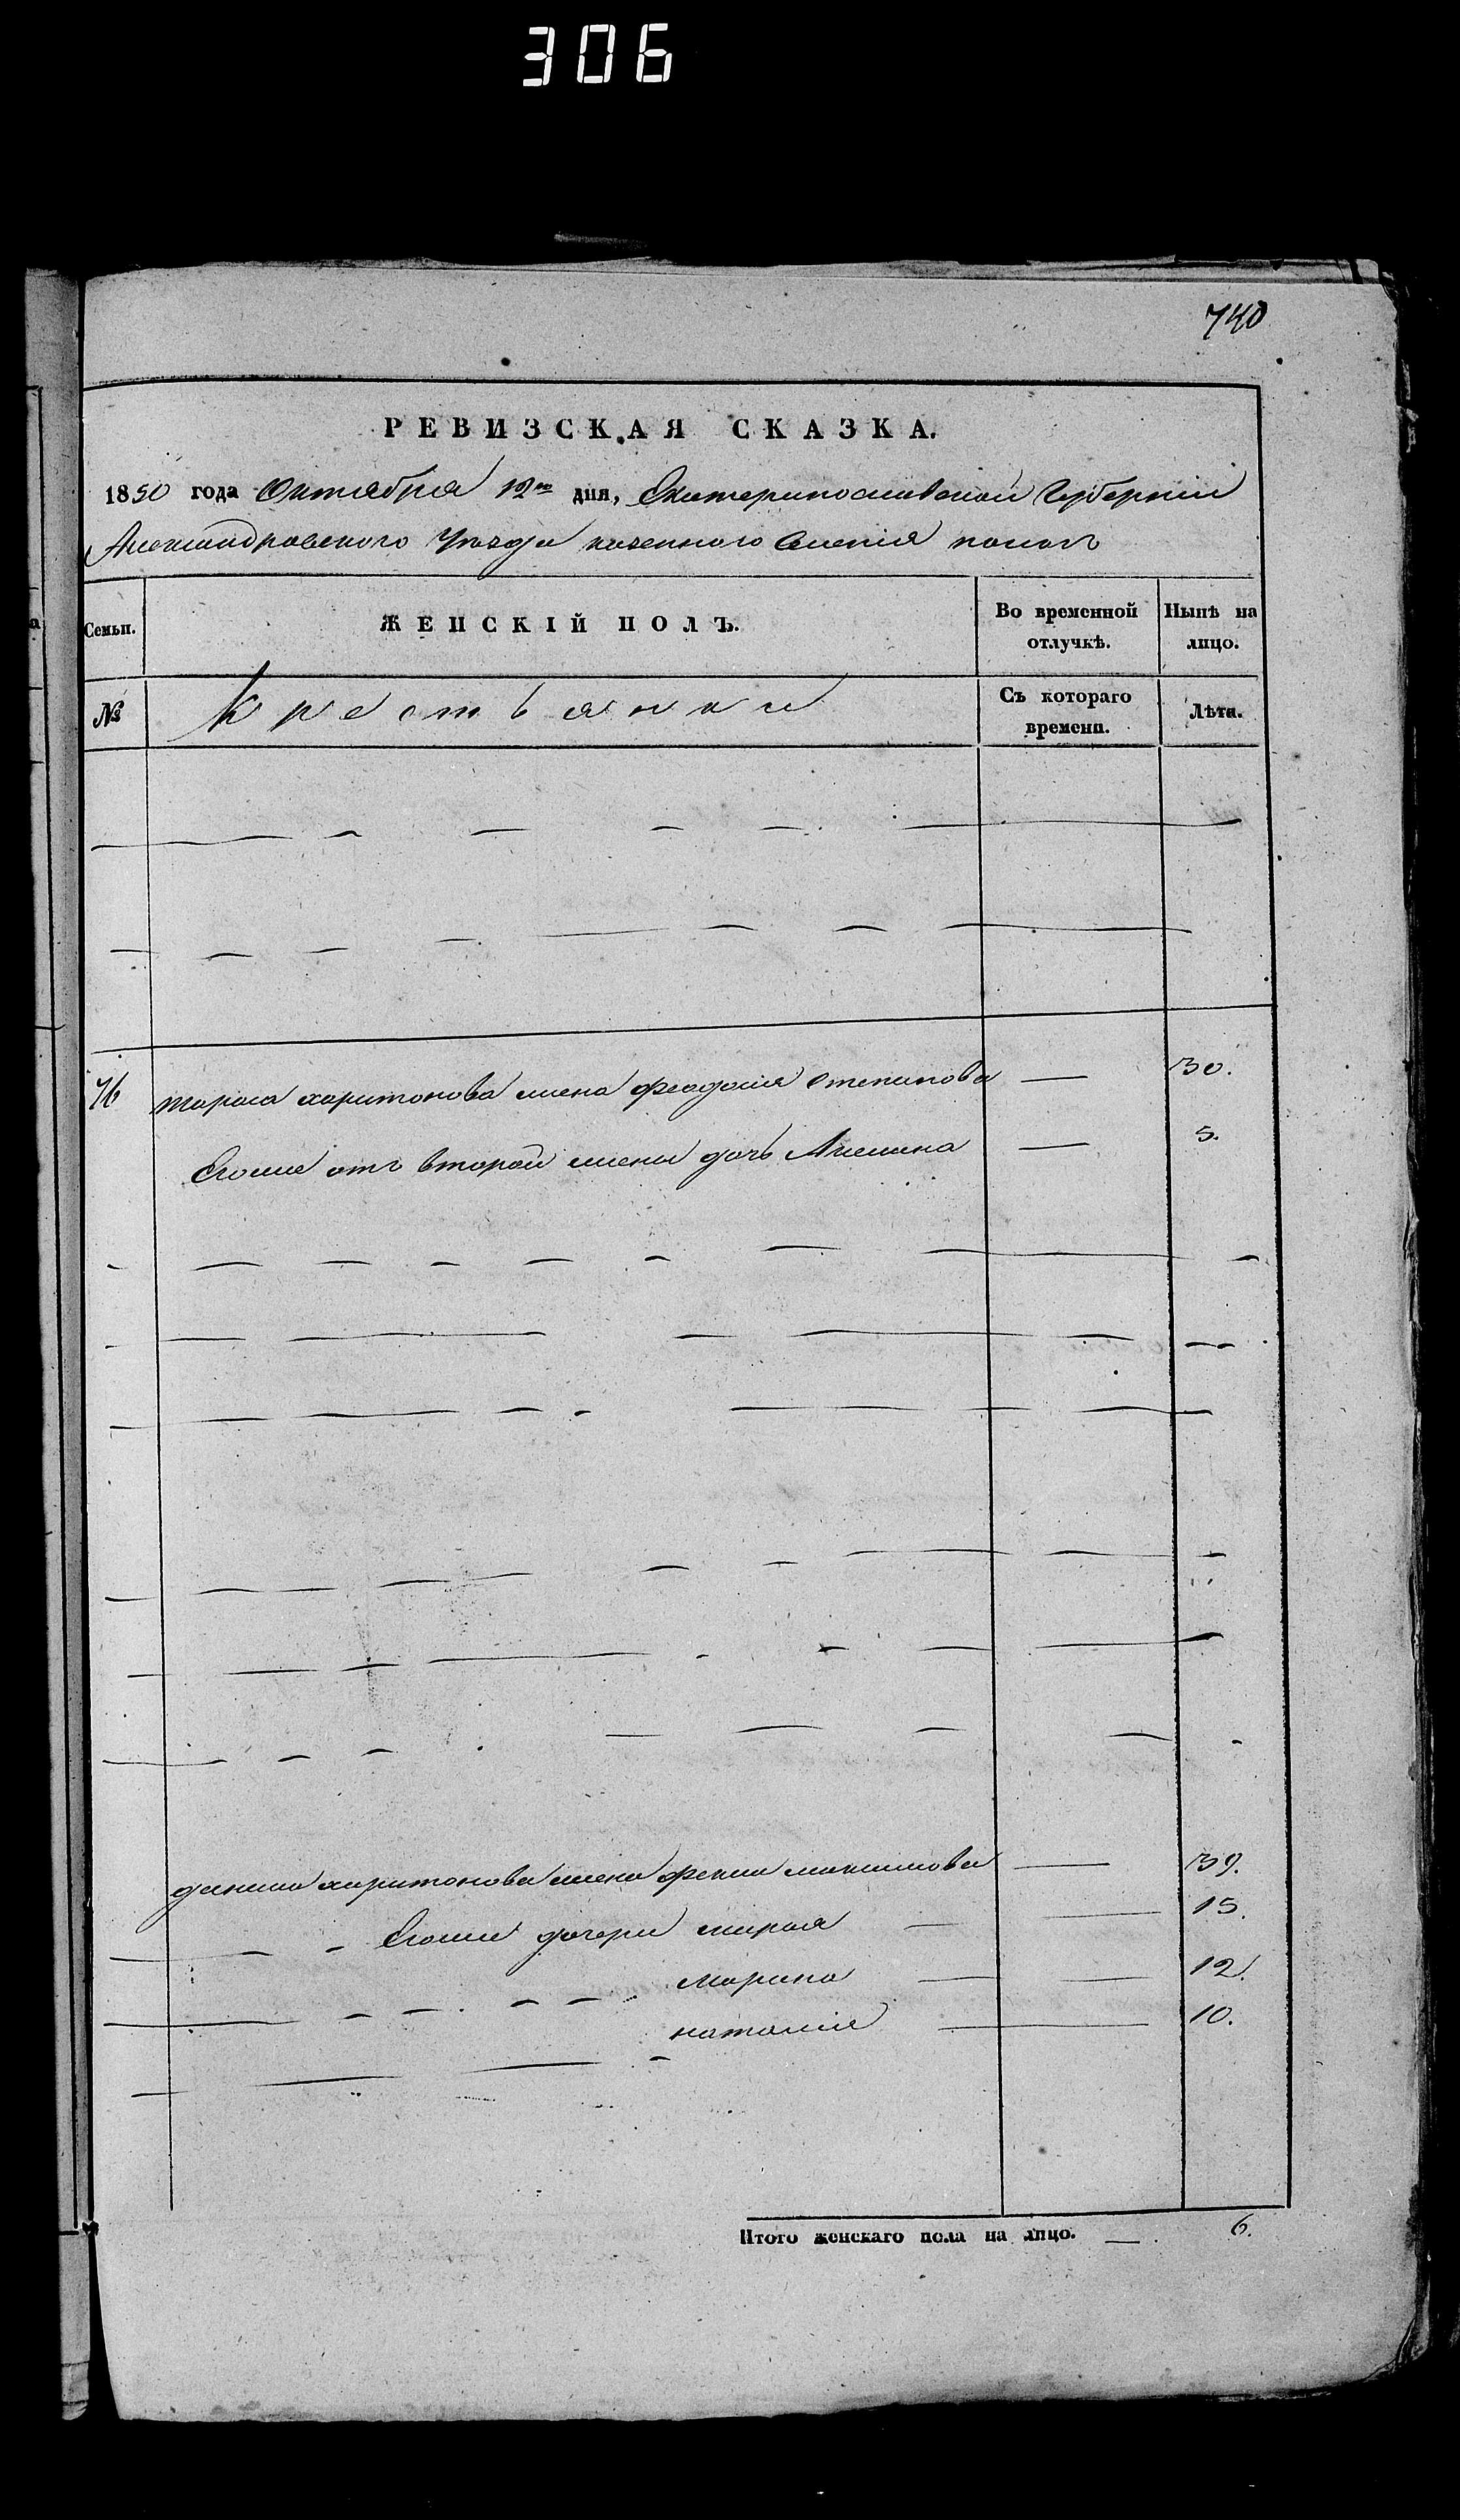 306
740
РЕВИЗСКАЯ СКАЗКА.
1850 года Октября 12го дня, Екатеринославской Губернiи
Александровского Уѣзда казенного Селенiя
Семьи. ЖЕНСКIЙ ПОЛЪ. Во временной отлучкѣ. Нынѣ на лицо.
№ Крестьянки Съ котораго времени. Лѣта.
76 тараса харитонова жена феодосiя степанова — 30.
Егоже отъ второй жены дочь Акимина — 5.
данила харитонова жена фекла максимова — 39.
Егоже дочери марья — 15.
марина — 12.
наталiя — 10.
Итого женскаго пола на лицо. — 6.